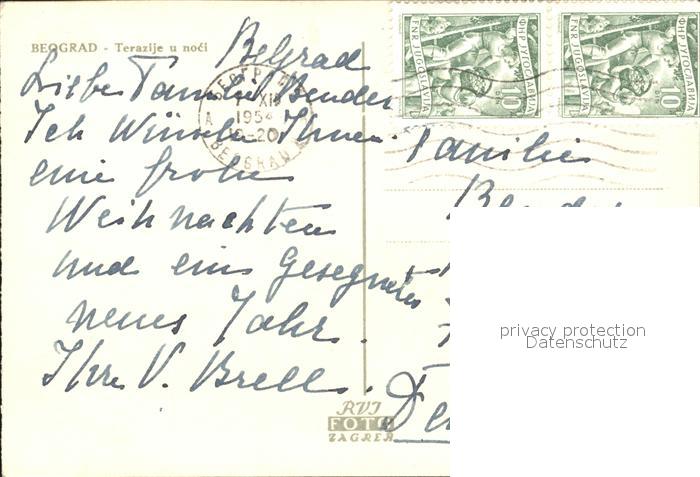 BEOGRAD - Terazije u noći
Belgrad
Liebe Familie Bender
Ich Wünsche Ihnen
eine frohe
Weihnachten
und ein Gesegnetes
neues Jahr.
Ihre V. Brell.
BEOGRAD
XII
1954
-20
BEOGRAD
A
ФНР ЈУГОСЛАВИЈА
FNR JUGOSLAVIJA
10
DIN
ФНР ЈУГОСЛАВИЈА
FNR JUGOSLAVIJA
10
DIN
Familie
Bender
privacy protection
Datenschutz
RVI
FOTO
ZAGREB